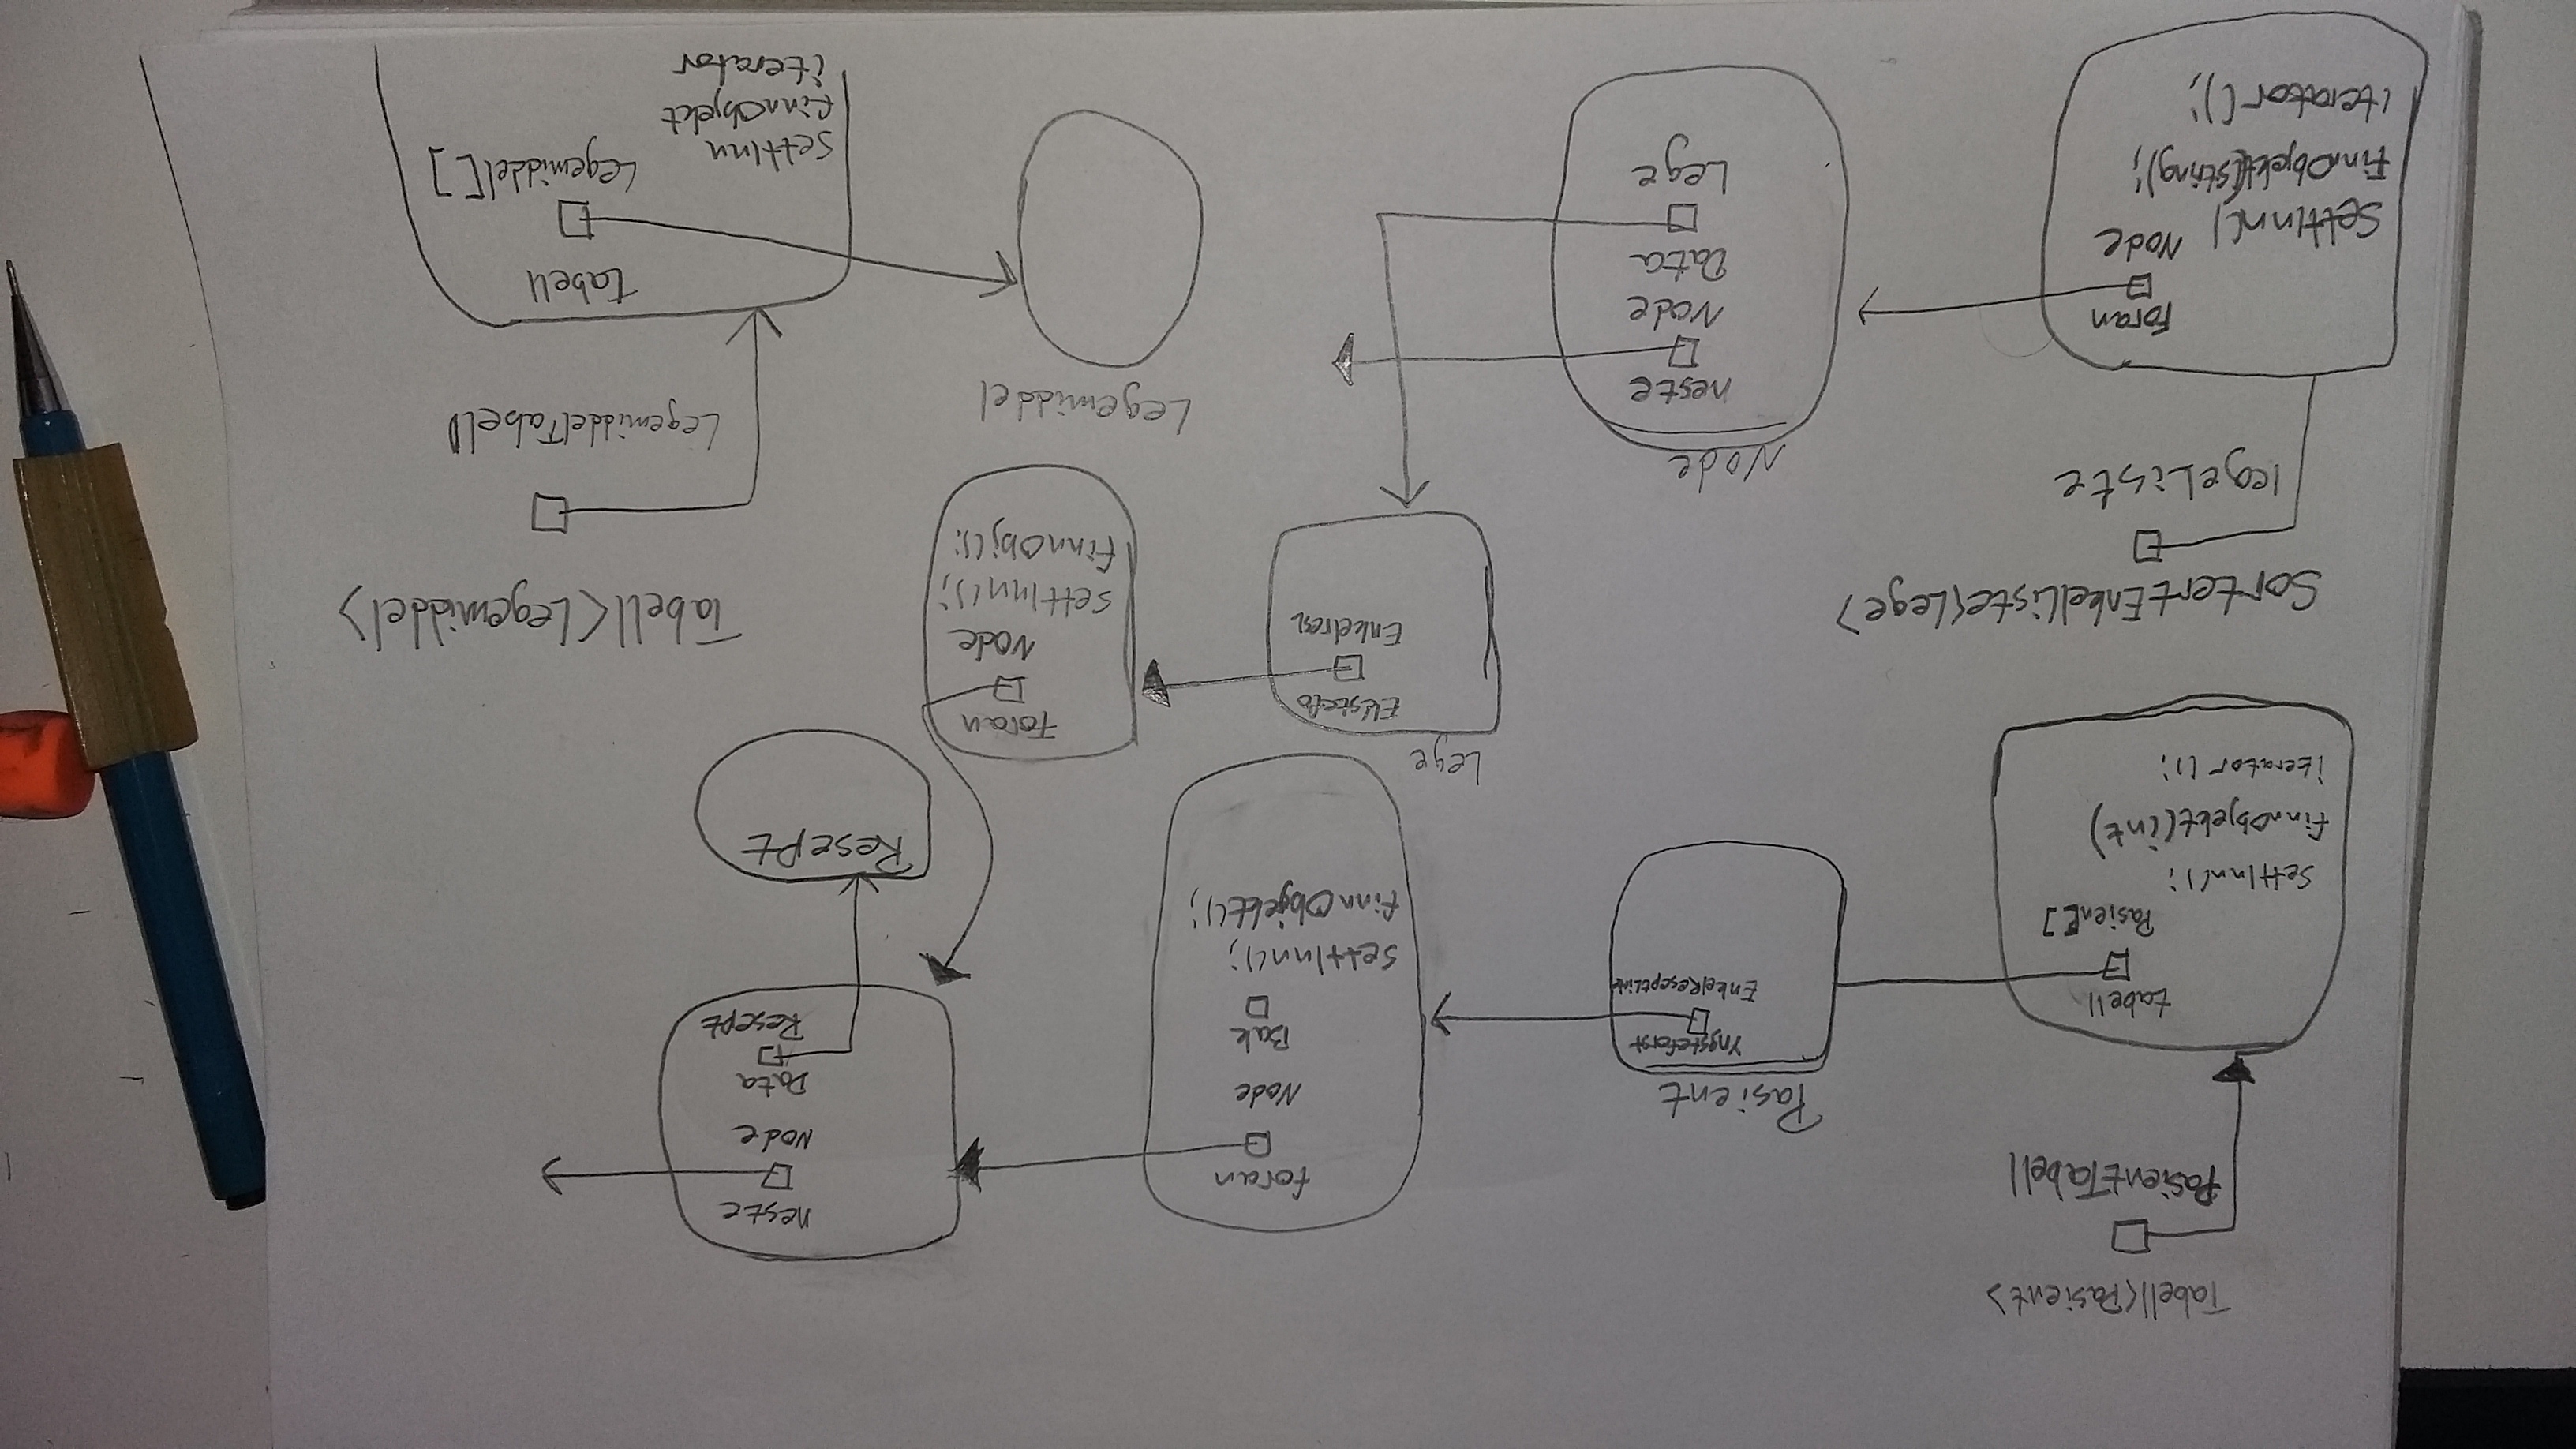 Tabell<Pasient>
PasientTabell
tabell
Pasien[]
settInn();
finnObjekt(int)
iterator();
Pasient
Yngsteforst
EnkelReseptListe
foran
Node
Bak
settInn();
finnObjekt();
neste
Node
Data
Resept
Resept
Lege
Eldstefo
Enkelres
Foran
Node
settInn();
finnObj();
SortertEnkelListe<Lege>
legeListe
Foran
Node
SettInn()
FinnObjekt(string);
iterator();
Node
neste
Node
Data
Lege
Legemiddel
Tabell<Legemiddel>
LegemiddelTabell
tabell
Legemiddel[]
settInn
finnObjekt
iterator